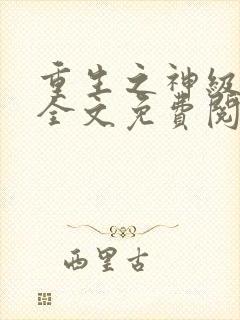 重生之神级
全文免費閱
西里古